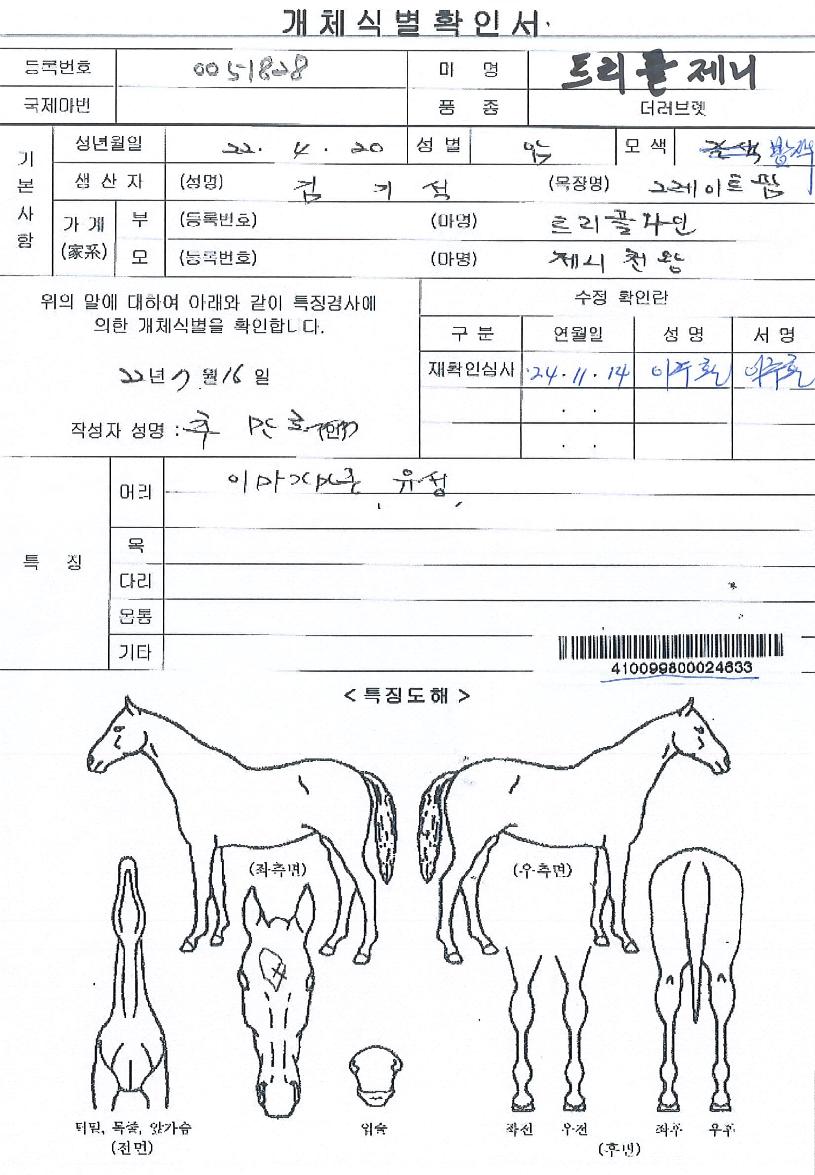 개체식별확인서
등록번호 0051828 마 명 트리플제니
국제마번 품 종 더러브렛
기본사항
생년월일 22. 4. 20 성별 암 모색 밤색
생산자 (성명) 김 기 석 (목장명) 그레이트팜
가계 (家系) 부 (등록번호) (마명) 트리플자인
모 (등록번호) (마명) 제시천왕
위의 말에 대하여 아래와 같이 특징검사에
의한 개체식별을 확인합니다.
22년 7월 16일
작성자 성명 : 추
수정 확인란
구 분 연월일 성 명 서 명
재확인심사 '24.11.14
. .
. .
특 징
머리 유성
목
다리
몸통
기타
410099800024633
< 특징도해 >
(좌측면) (우측면)
턱밑, 목줄, 앞가슴
(전면)
입술
좌전 우전 좌후 우후
(후면)